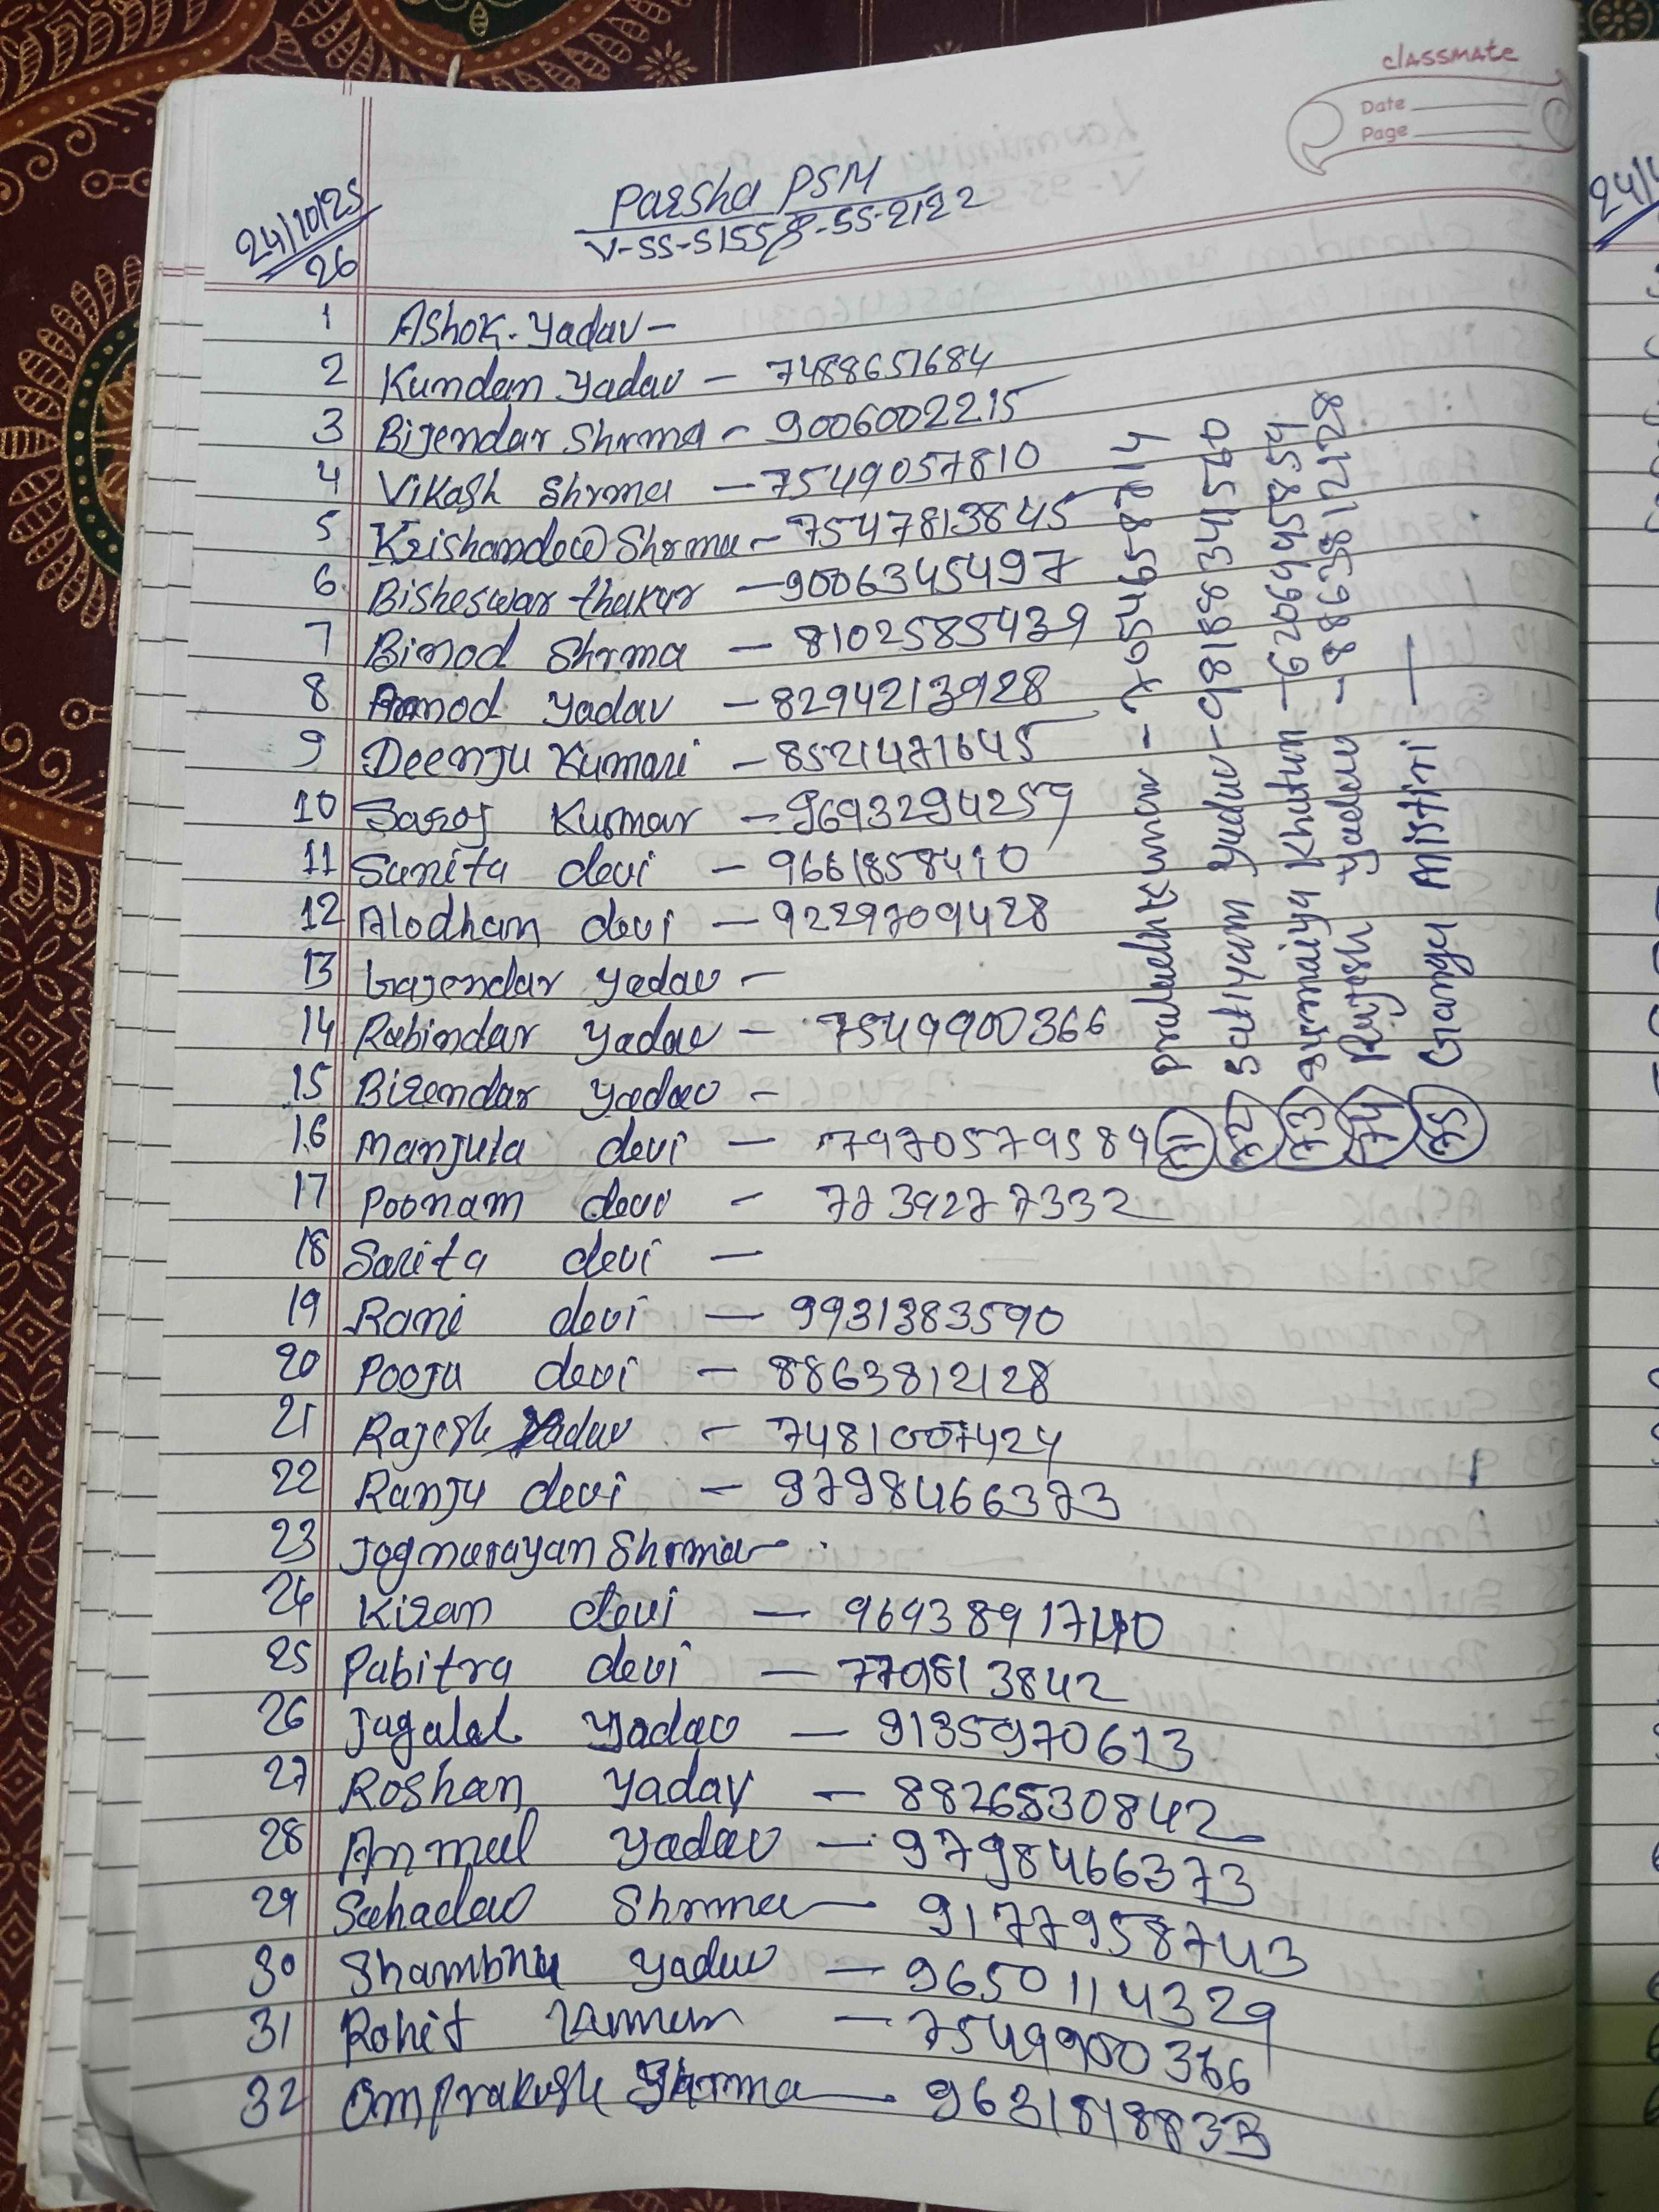 classmate
Date
Page
24/10/25
26
Parsha PSM
V-SS-5155, P-SS-2122
1 Ashok. Yadav -
2 Kundan Yadav - 7488651684
3 Bijendar Shrma - 9006002215
4 Vikash Shrma - 7549057810
5 Krishandew Shrma - 7547813845
6. Bisheswar thakur - 9006345497
7 Binod Shrma - 8102585439
8 Anmod Yadav - 8294213928
9 Deenju Kumari - 8521471645
10 Saroj Kusmar - 9693294259
11 Sunita devi - 9661858410
12 Alodhan devi - 9229709428
13 Gajendar Yadav -
14 Rabindar Yadav - 7549900366
15 Birendar Yadav -
16 Manjula devi - 7970579589
17 Poonam devi - 7739277332
18 Sarita devi -
19 Rani devi - 9931383590
20 Pooja devi - 8863812128
21 Rajesh Yadav - 7481007424
22 Ranju devi - 9798466373
23 Jognarayan Shrma -
24 Kiran devi - 9693891740
25 Pabitra devi - 779813842
26 Jagalal Yadav - 9135970613
27 Roshan Yadav - 8826530842
28 Anmul Yadav - 9798466373
29 Sahadav Shrma - 9177958743
30 Shambhu Yadav - 9650114329
31 Rohit Kumar - 7549900366
32 Omprakash Sharma - 9631818833
71 Kumar - 7654658714
72 Satiyam Yadav - 98188341560
73 Khatun - 6206945854
74 Rajesh Yadav - 8863812128
75 Gangu Mistiri -
24/